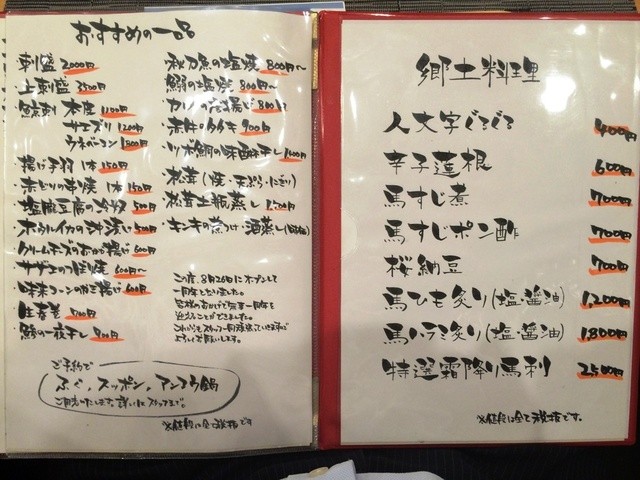 おすすめの一品
刺盛 2000円
上刺盛 3500円
鯨刺 本皮 1100円
サエズリ 1200円
ウネベーコン 1300円
揚げ手羽 1本 150円
赤どりの串焼 1本 150円
塩麻豆腐の冷奴 500円
クリームチーズのおかか揚げ 600円
サザエの 600円〜
600円
生春巻 700円
の一夜干し 800円
秋刀魚の塩焼 800円〜
の塩焼 800円〜
800円
のタタキ 900円
松茸(焼・天ぷら・にぎり)
松茸土瓶蒸し
キンキの煮つけ・酒蒸し
この度、8月26日にオープンして
一周年となりました。
皆様のおかげで無事一周年を
迎えることができました。
これからもスタッフ一同頑張っていきますので
よろしくお願いします。
ご予約で
ふぐ、スッポン、アンコウ鍋
ご用意いたします。詳しくはスタッフまで。
※値段は全て税抜です
郷土料理
人文字ぐるぐる 400円
辛子蓮根 600円
馬すじ煮 700円
馬すじポン酢 700円
桜納豆 700円
馬ひも炙り(塩・醤油) 1,200円
馬ハラミ炙り(塩・醤油) 1,800円
特選霜降り馬刺 2500円
※値段は全て税抜です。